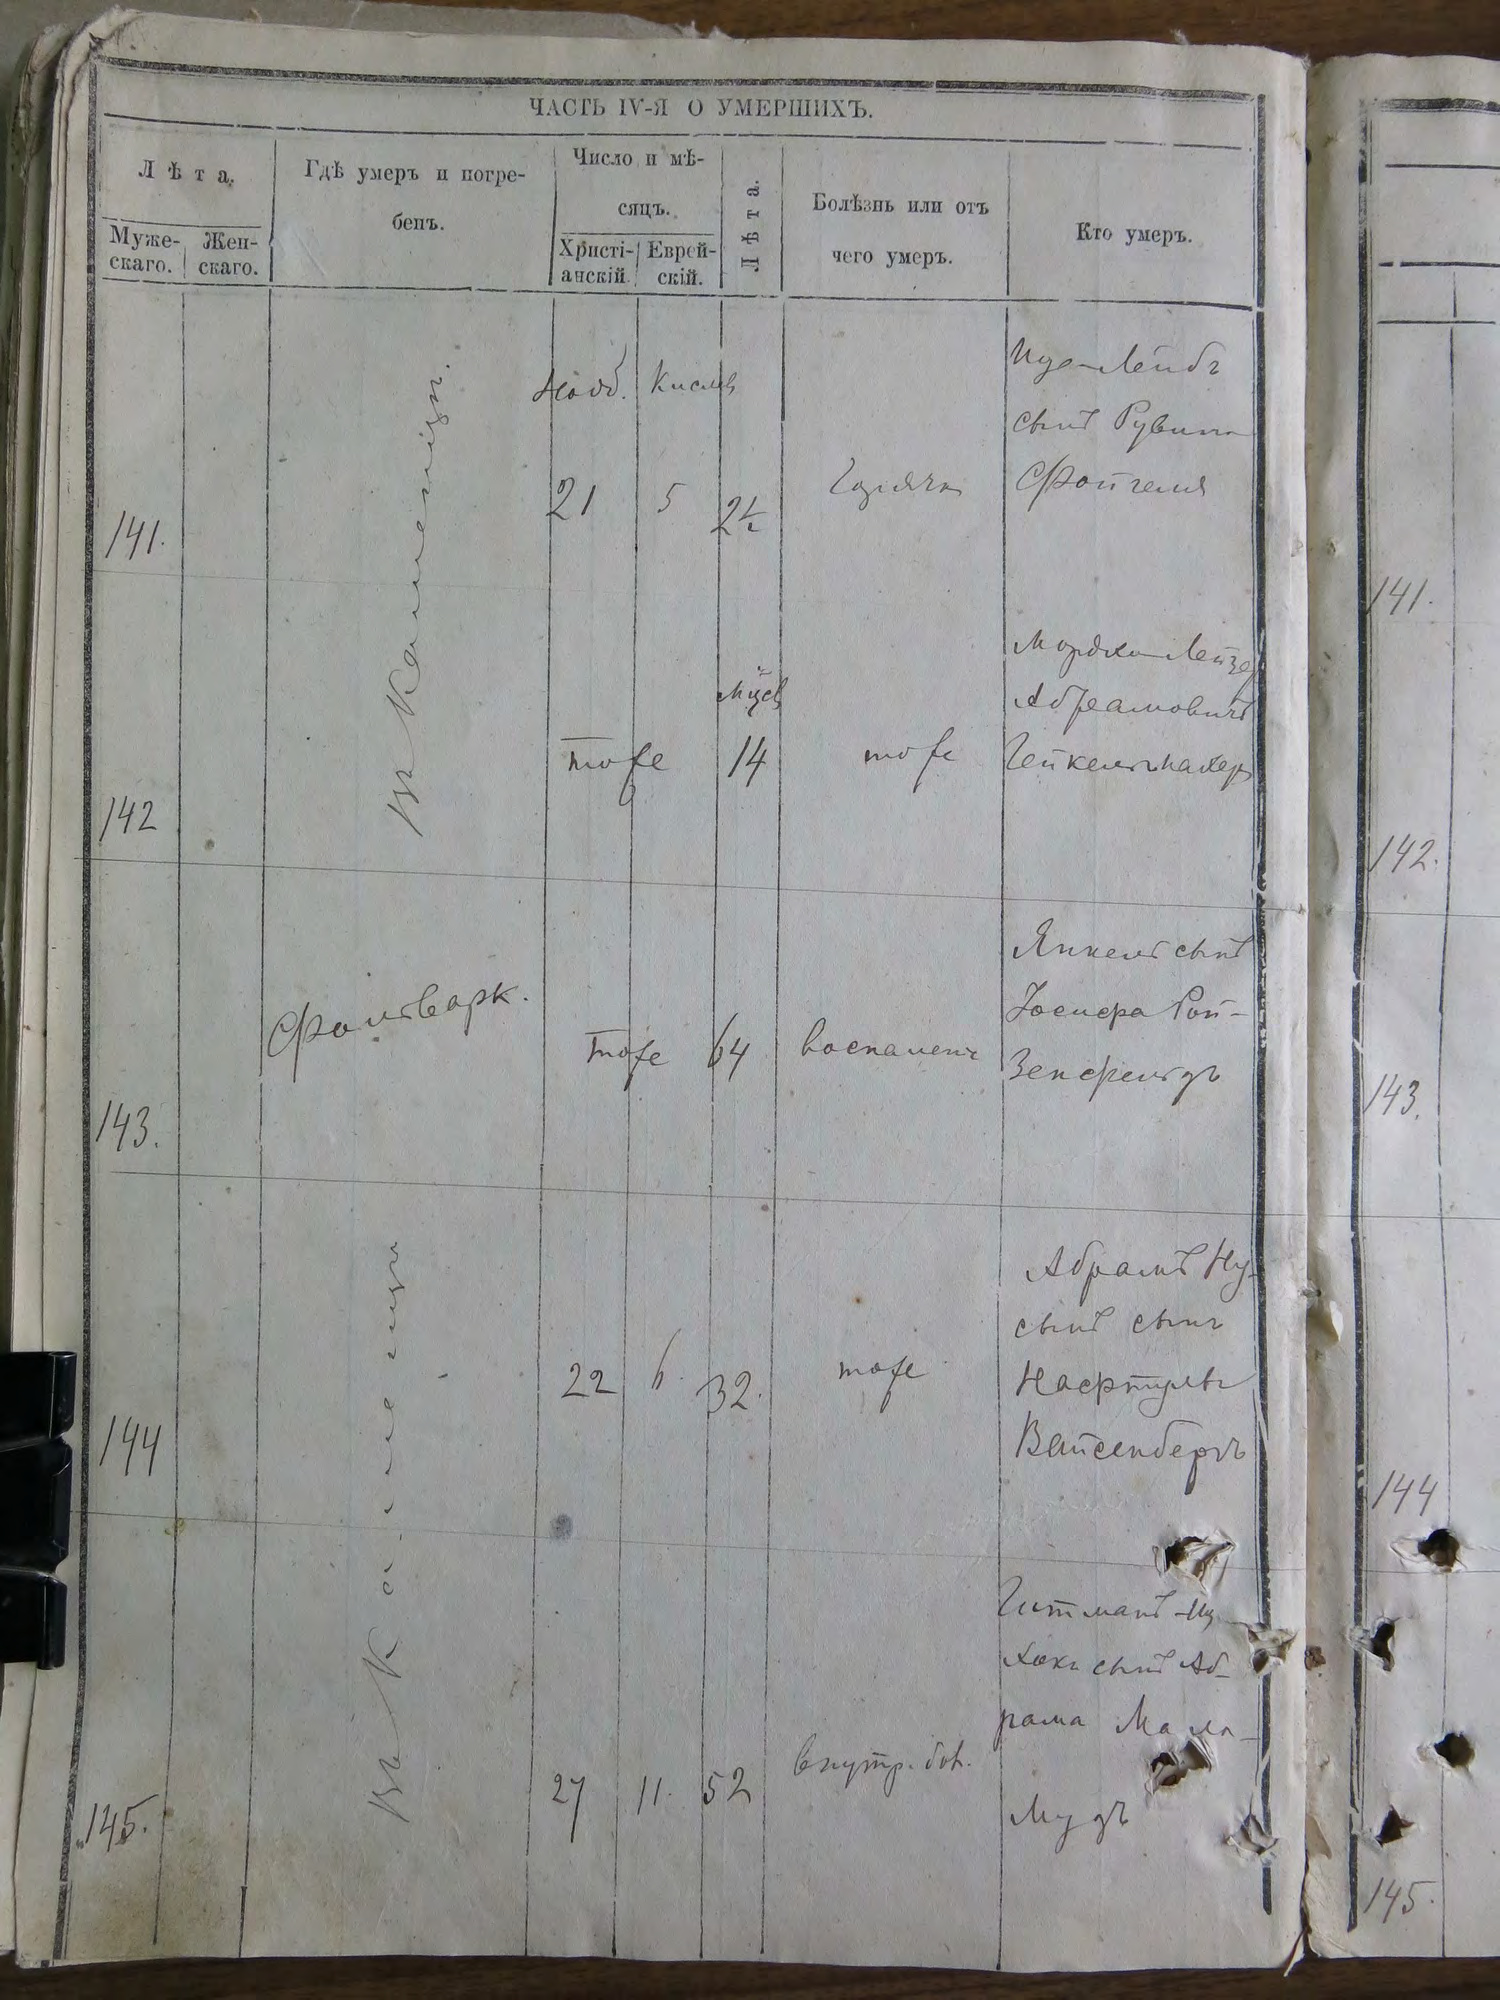 ЧАСТЬ IV-Я О УМЕРШИХЪ.
Лѣта.
Муже-
скаго.
Жен-
скаго.
Гдѣ умеръ и погре-
бенъ.
Число и мѣ-
сяцъ.
Христі-
анскій.
Еврей-
скій.
Лѣта.
Болѣзнь или отъ
чего умеръ.
Кто умеръ.
141.
въ Каменицѣ.
Нояб. Кислев
21 5 2½
Горячка
Иуе-Лейбъ
сынъ Рувина
Фойгеля
142
тоже
мѣсв
14
тоже
Мордко-Лейзер
Абрамовичъ
Гейкельмахеръ
143.
Фольварк.
тоже 64
воспаленъ
Янкель сынъ
Іосифа Рой-
зенфельдъ
144
въ Каменицы
22 6. 32.
тоже
Абрамъ Ну-
сынъ сынъ
Нафтулы
Вайсенбергъ
145.
27 11. 52
внутр. бол.
Гитманъ-Иц-
хокъ сынъ Аб-
рама Мала-
мудъ
141.
142.
143.
144
145.